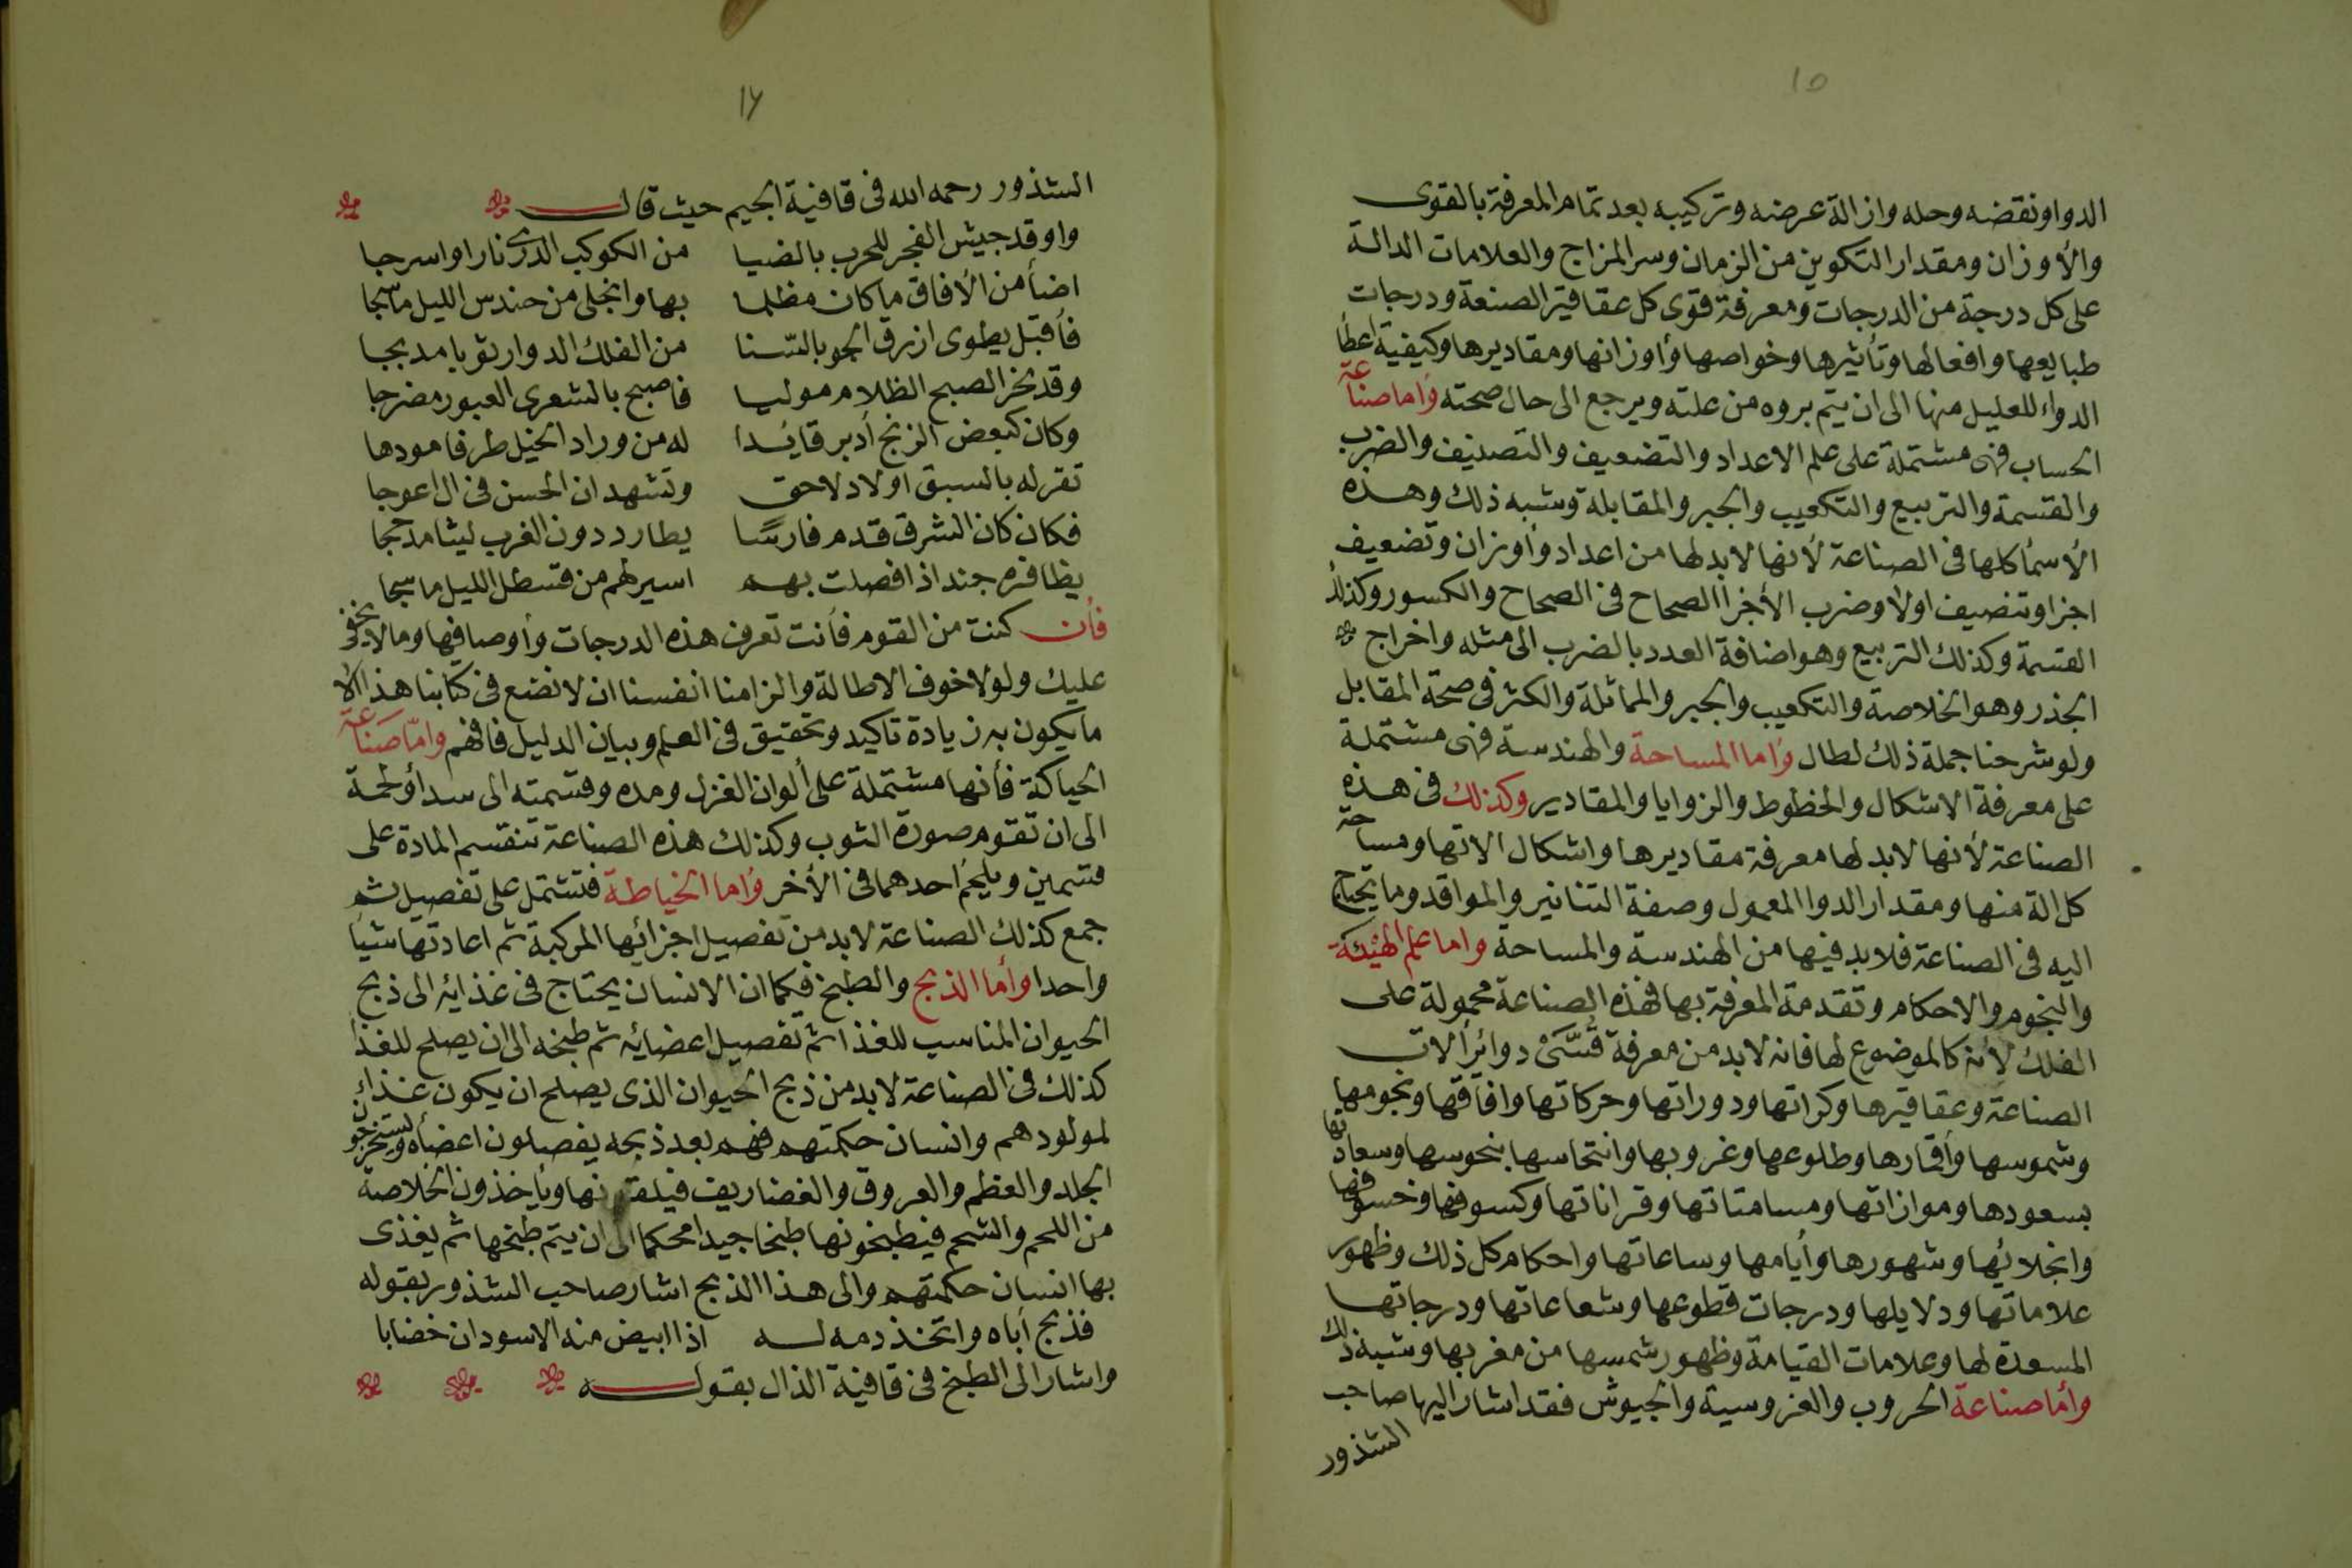 ١٥
الدواونقضه وحله وازالة عرضه وتركيبه بعد تمام المعرفة بالقوى
والأوزان ومقدار التكوين من الزمان وسر المزاج والعلامات الدالة
على كل درجة من الدرجات ومعرفة قوى كل عقاقير الصنعة ودرجات
طبايعها وافعالها وتأثيرها وخواصها وأوزانها ومقاديرها وكيفية اعطأ
الدواء للعليل منها الى ان يتم بروه من علته ويرجع الى حال صحته وأما صناعة
الحساب فهى مشتملة على علم الاعداد والتضعيف والتصنيف والضرب
والقسمة والتربيع والتكعيب والجبر والمقابلة وشبه ذلك وهذه
الأسمأ كلها فى الصناعة لأنها لابد لها من اعداد وأوزان وتضعيف
اجزا وتنصيف اولا وضرب الأجزا الصحاح فى الصحاح والكسور وكذلك
القسمة وكذلك التربيع وهو اضافة العدد بالضرب الى مثله واخراج
الجذر وهو الخلاصة والتكعيب والجبر والمماثلة والكثر فى صحة المقابل
ولو شرحنا جملة ذلك لطال وأما المساحة والهندسة فهى مشتملة
على معرفة الاشكال والخطوط والزوايا والمقادير وكذلك فى هذه
الصناعة لأنها لابد لها معرفة مقاديرها واشكال الاتها ومساحة
كل الة منها ومقدار الدوا المعمول وصفة التنانير والمواقد وما يحتاج
اليه فى الصناعة فلابد فيها من الهندسة والمساحة واما علم الهيئة
والنجوم والاحكام وتقدمة المعرفة بها فهذه الصناعة محمولة على
الفلك لأنه كالموضوع لها فانه لابد من معرفة دوائر ألات
الصناعة وعقاقيرها وكراتها ودوراتها وحركاتها وافاقها ونجومها
وشموسها وأقمارها وطلوعها وغروبها وانتحاسها بنحوسها وسعادتها
بسعودها وموازاتها ومسامتاتها وقراناتها وكسوفها وخسوفها
وانجلائها وشهورها وأيامها وساعاتها واحكام كل ذلك وظهور
علاماتها ودلايلها ودرجات قطوعها وشعاعاتها ودرجاتها
المسعدة لها وعلامات القيامة وظهور شمسها من مغربها وشبه ذلك
وأما صناعة الحروب والفروسية والجيوش فقد اشار اليها صاحب
الشذور
١٦
الشذور رحمه الله فى قافية الجيم حيث قال
واوقد جيش الفجر للحرب بالضيا من الكوكب الدرى نارا واسرجا
اضأ من الأفاق ما كان مظلما بها وانجلى من حندس الليل ما سجا
فأقبل يطوى ازرق الجو بالسنا من الفلك الدوار ثوبا مدبجا
وقد نحر الصبح الظلام موليا فاصبح بالشعرى العبور مضرجا
وكان كبعض الزنج أدبر قايدا له من وراد الخيل طرفا مودها
تقر له بالسبق اولاد لاحق وتشهد ان الحسن فى ال اعوجا
فكان كان الشرق قدم فارسا يطارد دون الغرب ليثا مدججا
يظافره جند اذا فصلت بهم اسير لهم من قسطل الليل ما سجا
فأن كنت من القوم فأنت تعرف هذه الدرجات وأوصافها وما لا يخفى
عليك ولولا خوف الاطالة والزامنا انفسنا ان لا نضع فى كتابنا هذا الا
ما يكون به زيادة تاكيد وتحقيق فى العلم وبيان الدليل فافهم وأما صناعة
الحياكة فأنها مشتملة على ألوان الغزل ومده وقسمته الى سدأ ولحمة
الى ان تقوم صورة الثوب وكذلك هذه الصناعة تنقسم المادة على
قسمين ويلحم احدهما فى الأخر وأما الخياطة فتشتمل على تفصيل ثم
جمع كذلك الصناعة لابد من تفصيل اجزائها المركبة ثم اعادتها شيأ
واحدا وأما الذبح والطبخ فكما ان الانسان يحتاج فى غذائه الى ذبح
الحيوان المناسب للغذا ثم تفصيل اعضائه ثم طبخه الى ان يصلح للغذا
كذلك فى الصناعة لابد من ذبح الحيوان الذى يصلح ان يكون غذاء
لمولودهم وانسان حكمتهم فهم بعد ذبحه يفصلون اعضأه ويستخرجون
الجلد والعظم والعروق والغضاريف فيلقونها ويأخذون الخلاصة
من اللحم والشحم فيطبخونها طبخا جيدا محكما الى ان يتم طبخها ثم يغذى
بها انسان حكمتهم والى هذا الذبح اشار صاحب الشذور بقوله
فذبح أباه واتخذ دمه له اذا ابيض منه الاسودان خضابا
واشار الى الطبخ فى قافية الذال بقوله